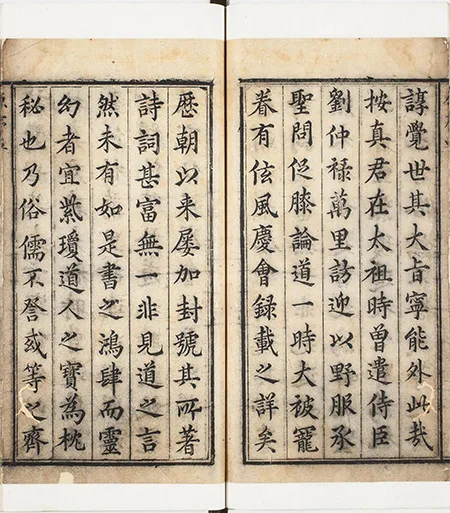 諄覺世其大旨寧能外此哉
按真君在太祖時曾遣侍臣
劉仲祿萬里訪迎以野服承
聖問促膝論道一時大被寵
眷有伭風慶會録載之詳矣
歷朝以来屡加封號其所著
詩詞甚富無一非見道之言
然未有如是書之鴻肆而靈
幻者宜紫瓊道人之寶為枕
秘也乃俗儒不詧或等之齊